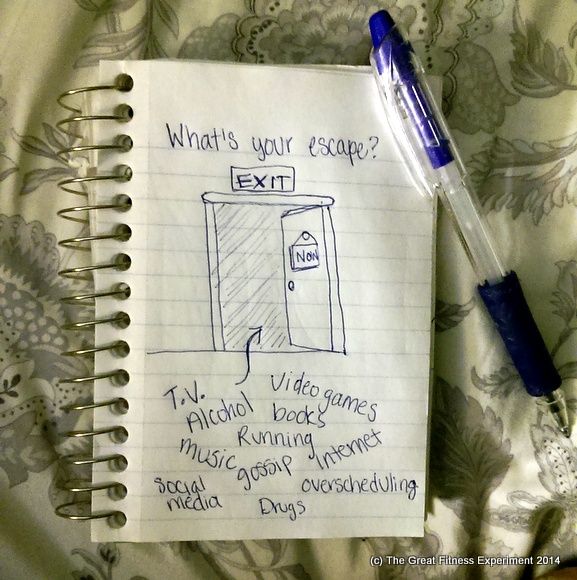 What's your escape?
EXIT
NOW
T.V. Video games
Alcohol books
Running
music gossip Internet
social media overscheduling
Drugs
(c) The Great Fitness Experiment 2014